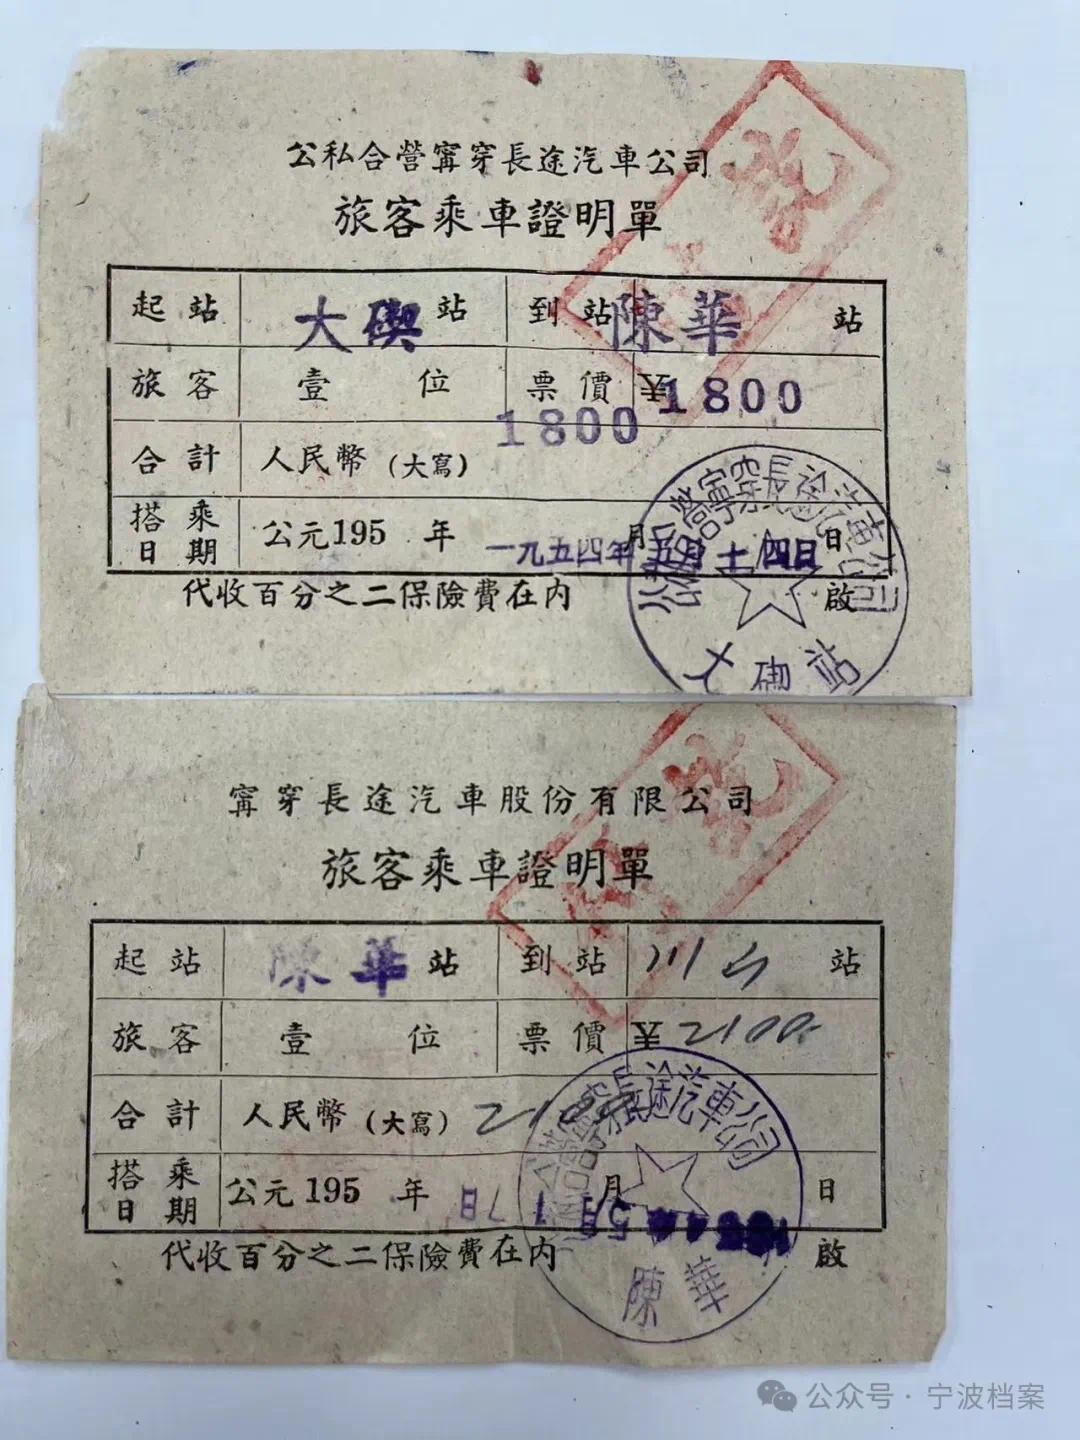 公私合營甯穿長途汽車公司
旅客乘車證明單
起站 大碶站 到站 陳華 站
旅客 壹位 票價 1800
合計 人民幣(大寫) 1800
搭乘日期 公元195 年 月 日
一九五四年五月十四日
代收百分之二保險費在內 啟
公私合營甯穿長途汽車公司
大碶站
甯穿長途汽車股份有限公司
旅客乘車證明單
起站 陳華站 到站 川山 站
旅客 壹位 票價 2100
合計 人民幣(大寫) 2100
搭乘日期 公元195 年 月 日
5月17日
代收百分之二保險費在內 啟
公私合營甯穿長途汽車公司
陳華
公众号·宁波档案